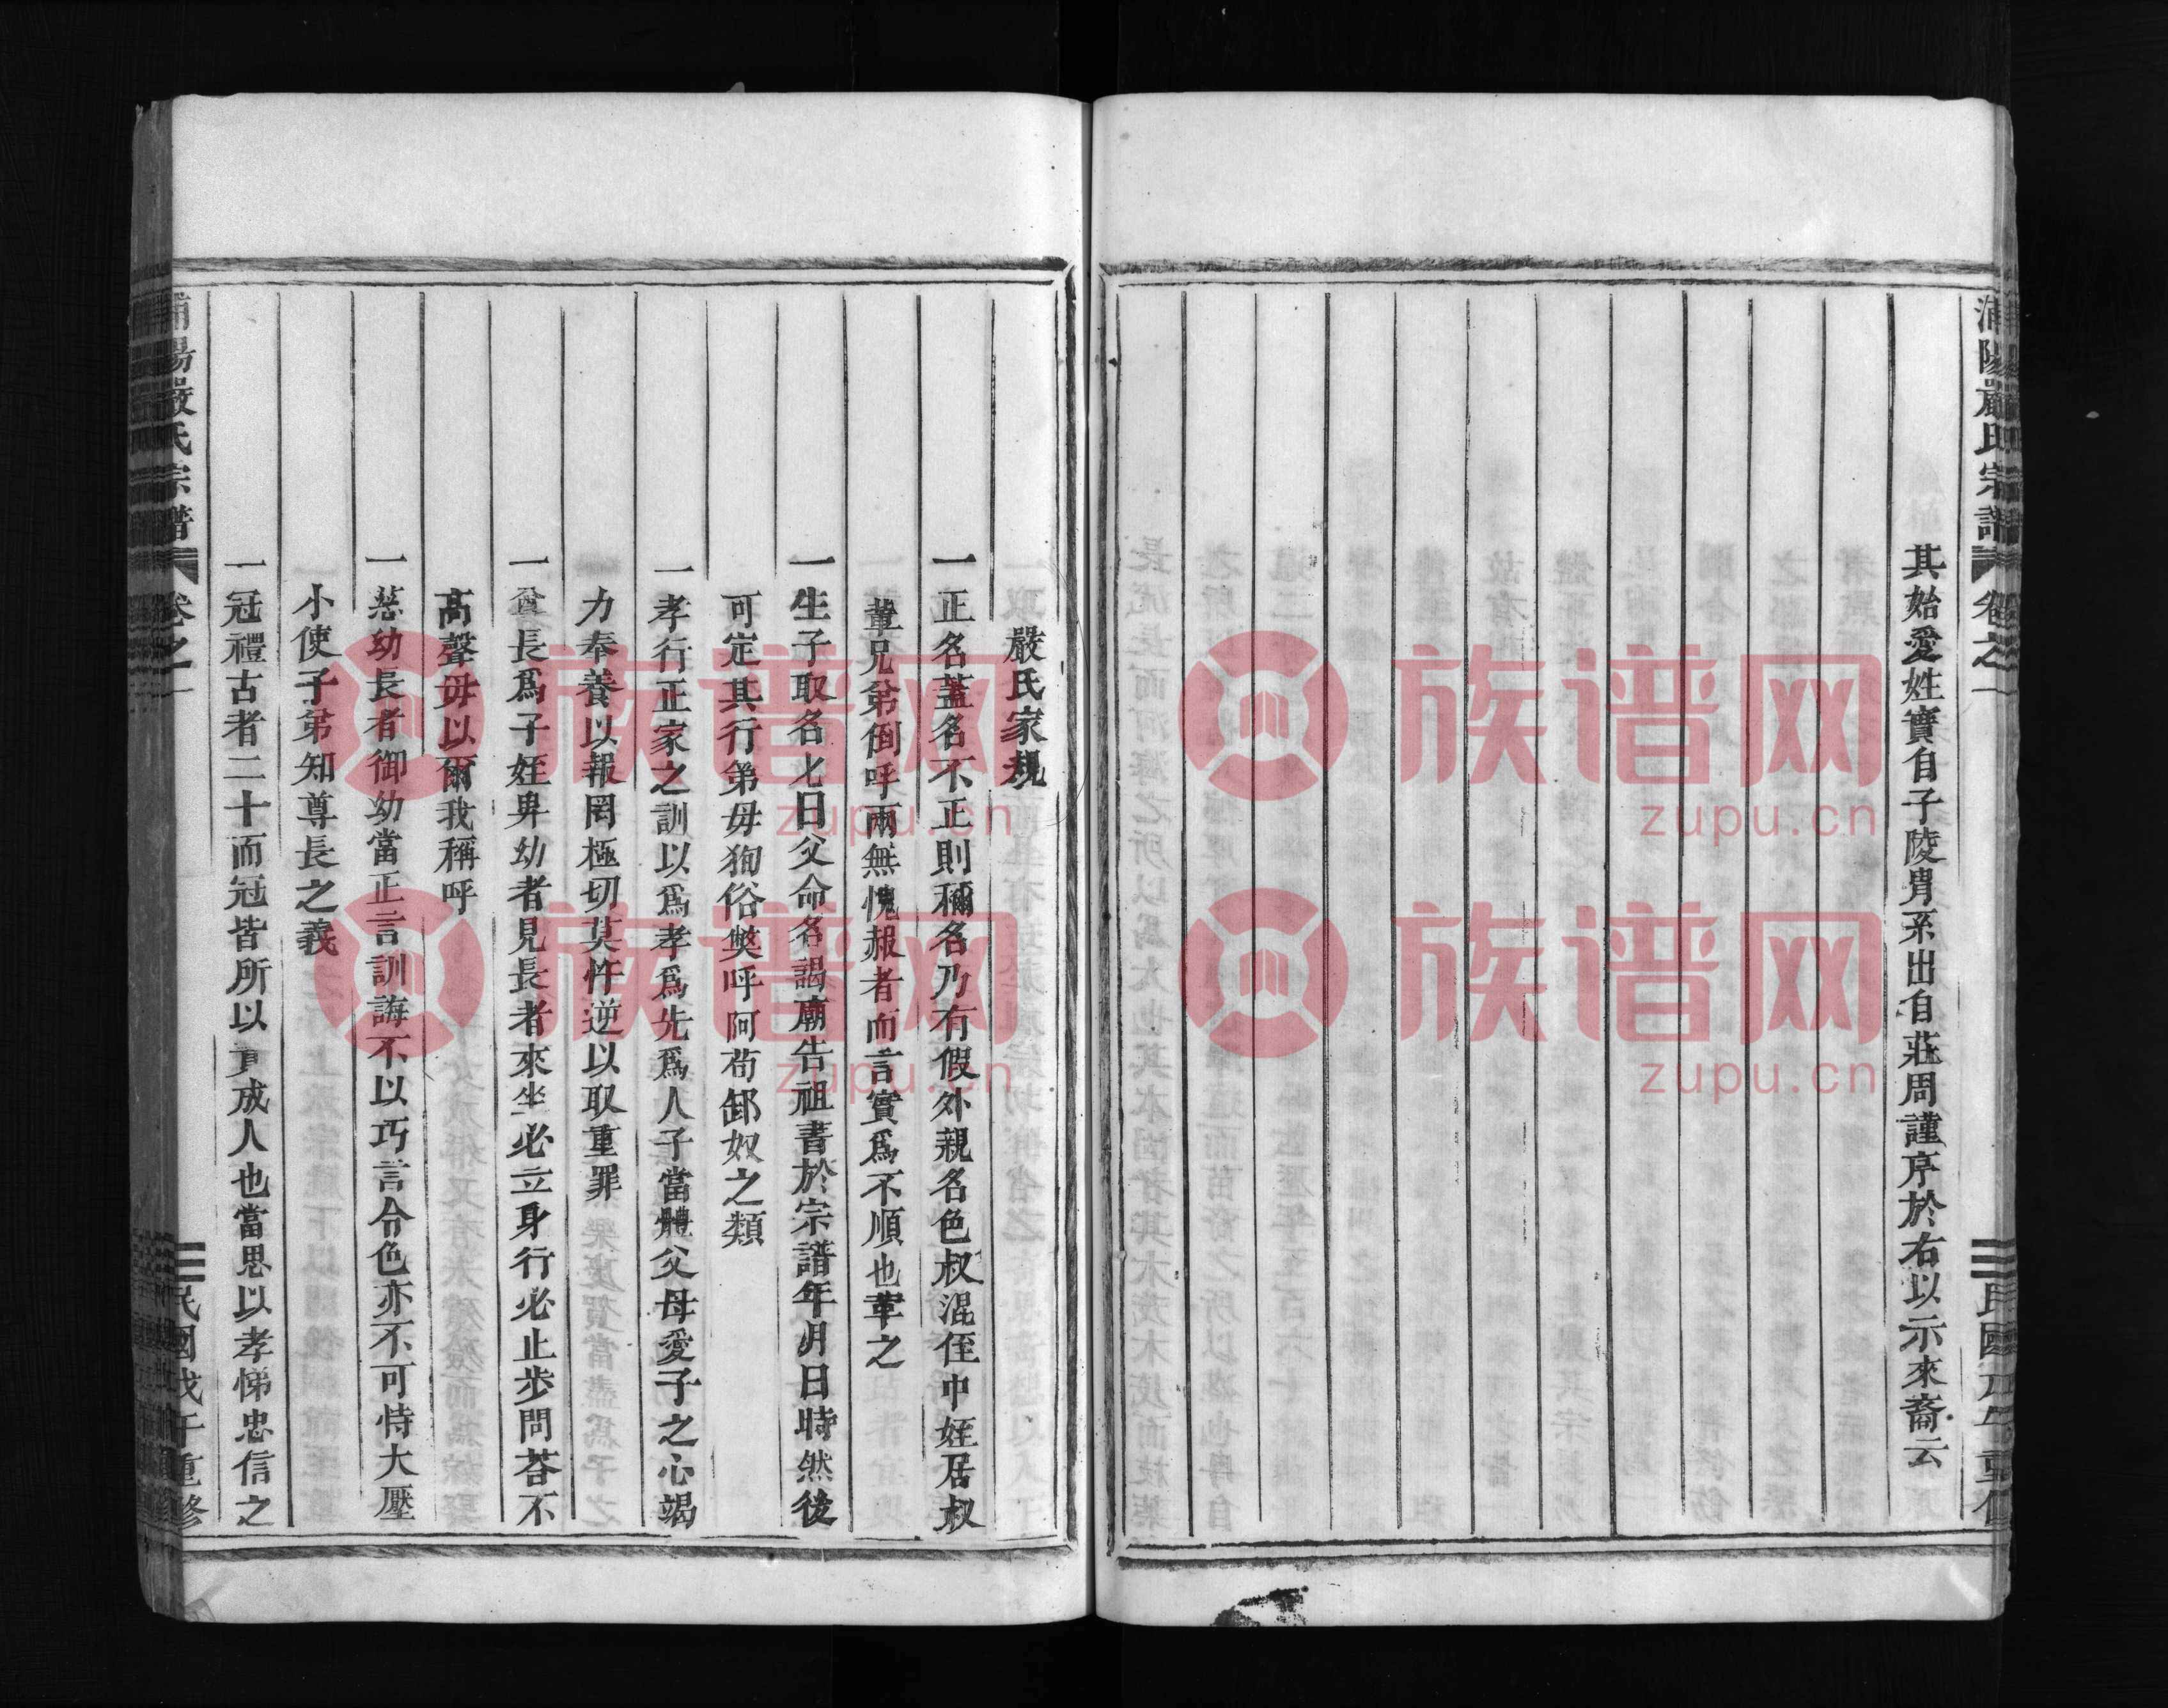 浦陽嚴氏宗譜 卷之一 民國戊午重修
其始爰姓實自子陵胄系出自莊周謹序於右以示來裔云
嚴氏家規
一正名蓋名不正則稱名乃有假外親名色叔混侄中姪居叔
輩兄弟倒呼兩無愧赧者而言實爲不順也革之
一生子取名七日父命名謁廟告祖書於宗譜年月日時然後
可定其行第毋狥俗獘呼阿苟卸奴之類
一孝行正家之訓以爲孝爲先爲人子當體父母愛子之心竭
力奉養以報罔極切莫忤逆以取重罪
一尊長爲子姪卑幼者見長者來坐必立身行必止步問荅不
高聲毋以爾我稱呼
一慈幼長者御幼當正言訓誨不以巧言令色亦不可恃大壓
小使子弟知尊長之義
一冠禮古者二十而冠皆所以責成人也當思以孝悌忠信之
浦陽嚴氏宗譜 卷之一 民國戊午重修
族谱网
zupu.cn
族谱网
zupu.cn
族谱网
zupu.cn
族谱网
zupu.cn